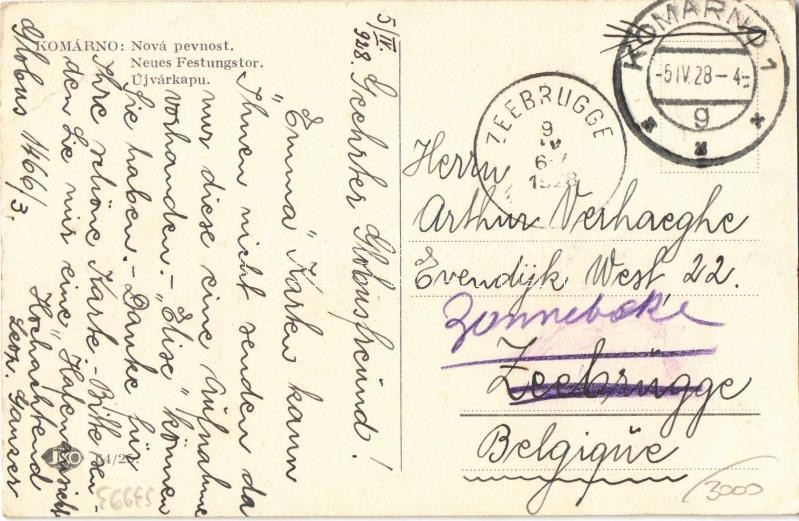 KOMÁRNO: Nová pevnost.
Neues Festungstor.
Újvárkapu.
5/IV
928.
Geehrter Globusfreund!
"Emma" Karten kann
Ihnen nicht senden da
nur diese eine Aufnahme
vorhanden.- "Elise" können
Sie haben.- Danke für
Ihre schöne Karte.- Bitte sen-
den Sie mir eine "Hafenansicht
Hochachtend
Globus 1466/3.
64/2
53993
KOMÁRNO 1
-5.IV.28-4
g
ZEEBRUGGE
9
IV
6-7
1928
Herrn
Arthur Verhaeghe
Evendijk West, 22.
Zonnebeke
Zeebrügge
Belgiqüe
3000